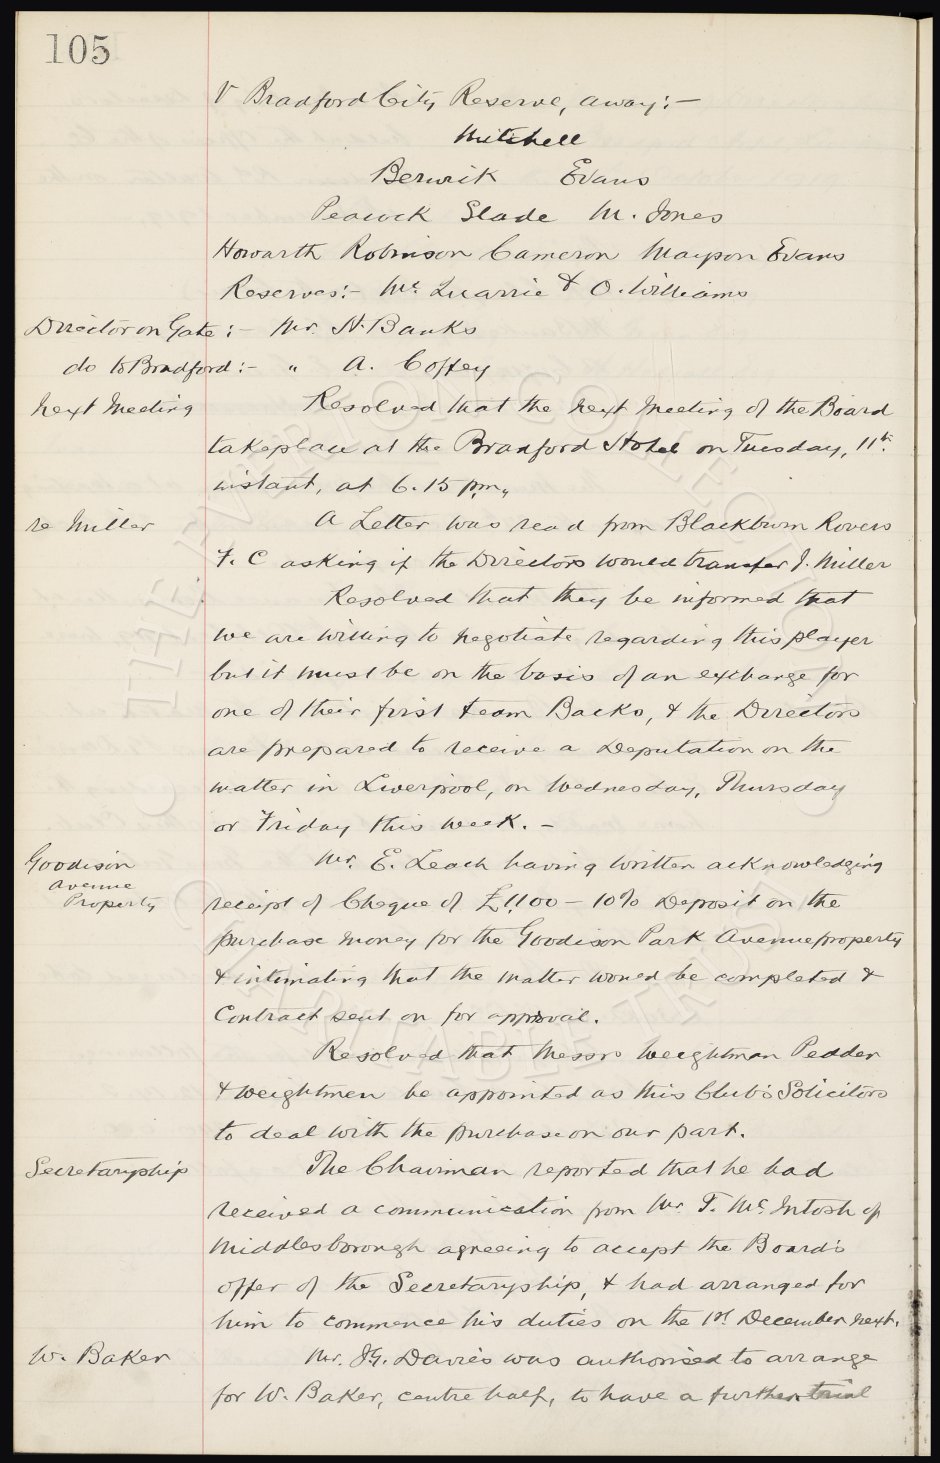 105
V Bradford City Reserve, away:-
Mitchell
Berwick Evans
Peacock Slade M. Jones
Howarth Robinson Cameron Mayson Evans
Reserves:- McQuarrie & O. Williams
Director on Gate:- Mr. N. Banks
do to Bradford:- " A. Coffey
Next Meeting Resolved that the next Meeting of the Board
take place at the Branford Hotel on Tuesday, 11th.
instant, at 6.15 p.m.,
re Miller A Letter was read from Blackburn Rovers
F. C asking if the Directors would transfer J. Miller
Resolved that they be informed that
we are willing to negotiate regarding this player
but it must be on the basis of an exchange for
one of their first team Backs, & the Directors
are prepared to receive a Deputation on the
matter in Liverpool, on Wednesday, Thursday
or Friday this week. -
Goodison Avenue Property Mr. E. Leach having written acknowledging
receipt of Cheque of £1,100 - 10% Deposit on the
purchase money for the Goodison Park Avenue property
& intimating that the matter would be completed &
Contract sent on for approval.
Resolved that Messrs Weightman Pedder
& Weightmen be appointed as this Club's Solicitors
to deal with the purchase on our part.
Secretaryship The Chairman reported that he had
received a communication from Mr. T. McIntosh of
Middlesborough agreeing to accept the Board's
offer of the Secretaryship, & had arranged for
him to commence his duties on the 1st December next.
W. Baker Mr. J.G. Davies was authorised to arrange
for W. Baker, centre half, to have a further trial